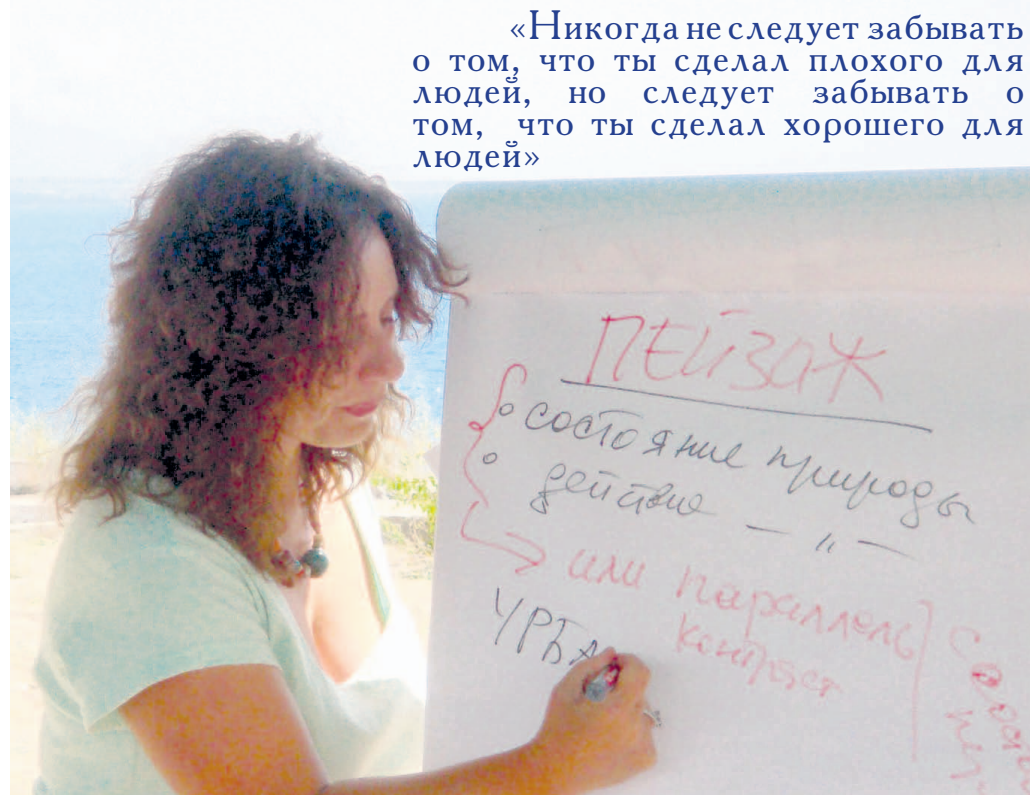 «Никогда не следует забывать
о том, что ты сделал плохого для
людей, но следует забывать о
том, что ты сделал хорошего для
людей»
ПЕЙЗАЖ
состояние природы
действие — " —
или параллель
контраст
УРБА